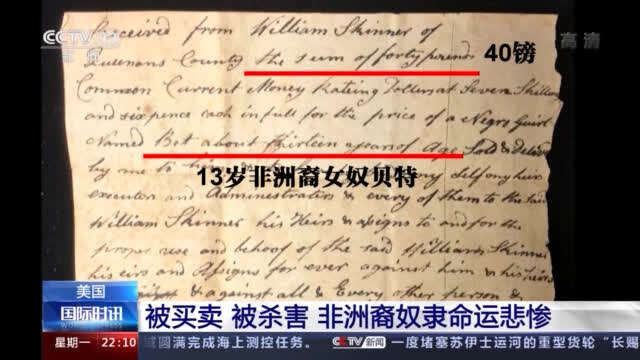 CCTV 13
高清
Received from William Skinner of
Queenans County the sum of forty pounds
40镑
Common Current Money Rateing Dollars at Seven Shillins
and sixpence each in full for the price of a Negro Guirl
Named Bet about thirteen years of Age Sold & deliver
by me to him
13岁非洲裔女奴贝特
executors and Administrators & every of them to the said
William Skinner his Heirs & assigns to and for the
proper use and behoof of the said William Skinner
his eirs and Assigns for ever against him & his heirs
and against all & Every other person &
美国
国际时讯
被买卖 被杀害 非洲裔奴隶命运悲惨
星期一 22:10
域圆满完成海上测控任务。
CCTV 新闻
一度堵塞苏伊士运河的重型货轮“长赐